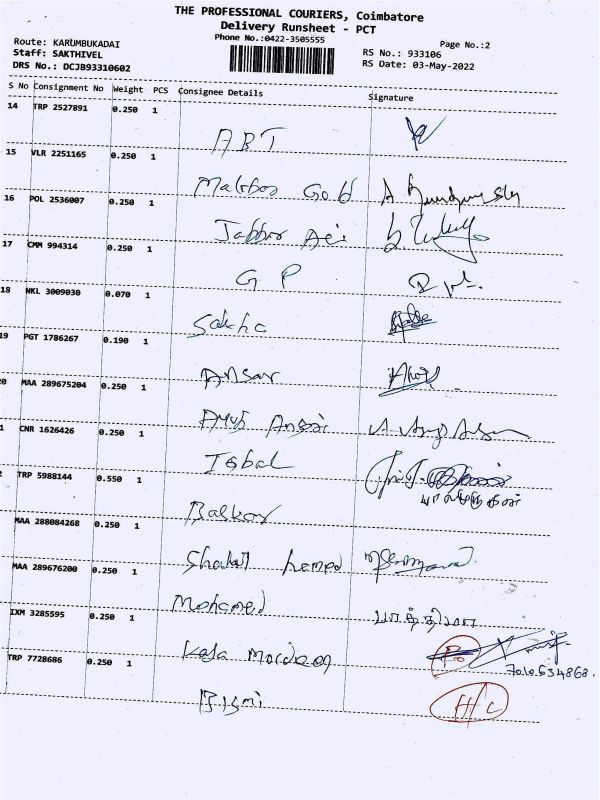 THE PROFESSIONAL COURIERS, Coimbatore
Delivery Runsheet - PCT
Phone No.:0422-3505555
Page No.:2
Route: KARUMBUKADAI
Staff: SAKTHIVEL
DRS No.: DCJB93310602
RS No.: 933106
RS Date: 03-May-2022
S No Consignment No Weight PCS Consignee Details Signature
14 TRP 2527891 0.250 1
ABT
15 VLR 2251165 0.250 1
Malabar Gold
16 POL 2536007 0.250 1
Jabbar Aci
17 CMM 994314 0.250 1
G P
18 NKL 3009030 0.070 1
19 PGT 1786267 0.190 1
Ansar
0 MAA 289675204 0.250 1
Ansari
1 CNR 1626426 0.250 1
Iqbal
TRP 5988144 0.550 1
MAA 288084268 0.250 1
MAA 289676200 0.250 1
Mohamed
IXM 3285595 0.250 1
Kaja Moideen
7010634868.
TRP 7728686 0.250 1
H/C